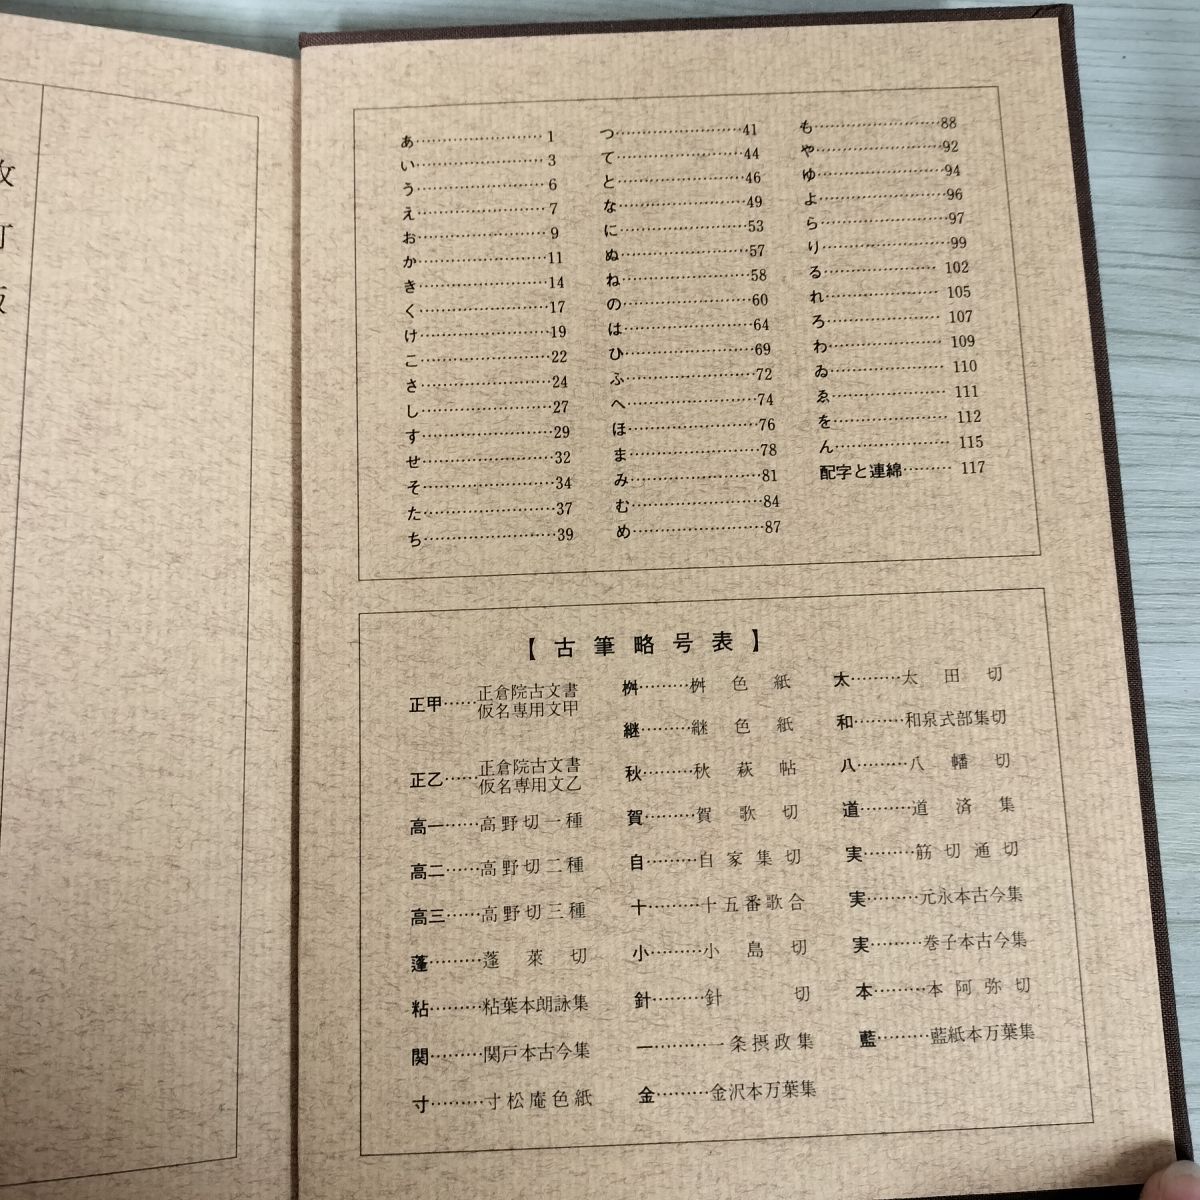 改
訂
版
あ……………………1
い……………………3
う……………………6
え……………………7
お……………………9
か……………………11
き……………………14
く……………………17
け……………………19
こ……………………22
さ……………………24
し……………………27
す……………………29
せ……………………32
そ……………………34
た……………………37
ち……………………39
つ……………………41
て……………………44
と……………………46
な……………………49
に……………………53
ぬ……………………57
ね……………………58
の……………………60
は……………………64
ひ……………………69
ふ……………………72
へ……………………74
ほ……………………76
ま……………………78
み……………………81
む……………………84
め……………………87
も……………………88
や……………………92
ゆ……………………94
よ……………………96
ら……………………97
り……………………99
る…………………102
れ…………………105
ろ…………………107
わ…………………109
ゐ…………………110
ゑ…………………111
を…………………112
ん…………………115
配字と連綿………117
【古筆略号表】
正甲……正倉院古文書
仮名専用文甲
正乙……正倉院古文書
仮名専用文乙
高一……高野切一種
高二……高野切二種
高三……高野切三種
蓬………蓬萊切
粘………粘葉本朗詠集
関………関戸本古今集
寸………寸松庵色紙
桝………桝色紙
継………継色紙
秋………秋萩帖
賀………賀歌切
自………自家集切
十………十五番歌合
小………小島切
針………針切
一………一条摂政集
金………金沢本万葉集
太………太田切
和………和泉式部集切
八………八幡切
道………道済集
実………筋切通切
実………元永本古今集
実………巻子本古今集
本………本阿弥切
藍………藍紙本万葉集